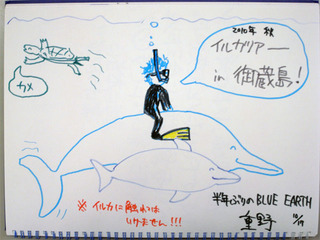 2010年 秋
イルカリアー
in 御蔵島!
カメ
※ イルカに触れては
いけません!!!
半年ぶりのBLUE EARTH
重野 10/19